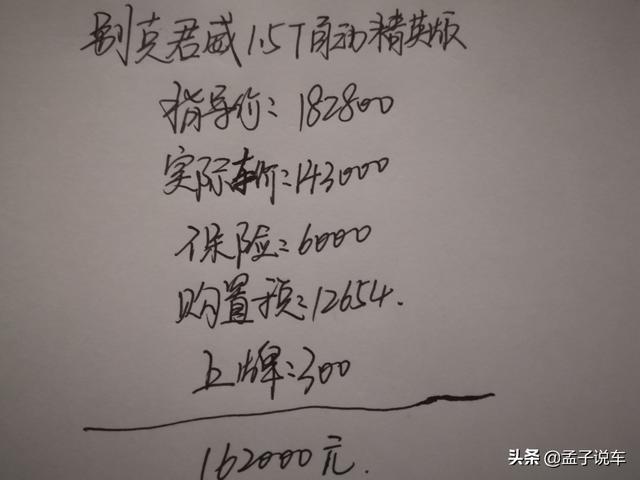 别克君威1.5T自动精英版
指导价:182800
实际车价:143000
保险:6000
购置税:12654.
上牌:300
162000元.
头条 @孟子说车